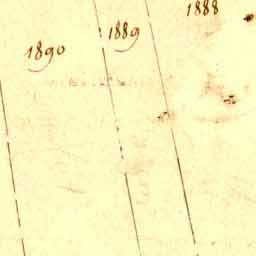 1890 1889 1888